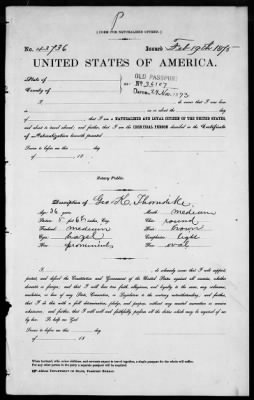 P
[FORM FOR NATURALIZED CITIZEN.]
No. 43736 Issued Feb 19th 1875
UNITED STATES OF AMERICA.
State of
County of
OLD PASSPORT
No. 36107
Dated 24 Nov. 1873
do swear that I was born
on or about the day
of that I am a NATURALIZED AND LOYAL CITIZEN OF THE UNITED STATES,
and about to travel abroad; and further, that I am the IDENTICAL PERSON described in the Certificate
of Naturalization herewith presented.
Sworn to before me this day
of 18
Notary Public.
Description of Geo. K. Thorndike
Age: 36 years Mouth: medium
Stature: 5 feet 6½ inches, Eng. Chin: round
Forehead: medium Hair: brown
Eyes: hazel Complexion: light
Nose: prominent Face: oval
I, do solemnly swear that I will support,
protect, and defend the Constitution and Government of the United States against all enemies, whether
domestic or foreign; and that I will bear true faith, allegiance, and loyalty to the same, any ordinance,
resolution, or law of any State, Convention, or Legislature to the contrary notwithstanding; and further,
that I do this with a full determination, pledge, and purpose, without any mental reservation or evasion
whatsoever; and further, that I will well and faithfully perform all the duties which may be required of me
by law: So help me God.
Sworn to before me this day
of 18
When husband, wife, minor children, and servants expect to travel together, a single passport for the whole will suffice.
For any other person in the party a separate passport will be required.
DEPARTMENT OF STATE, PASSPORT BUREAU.